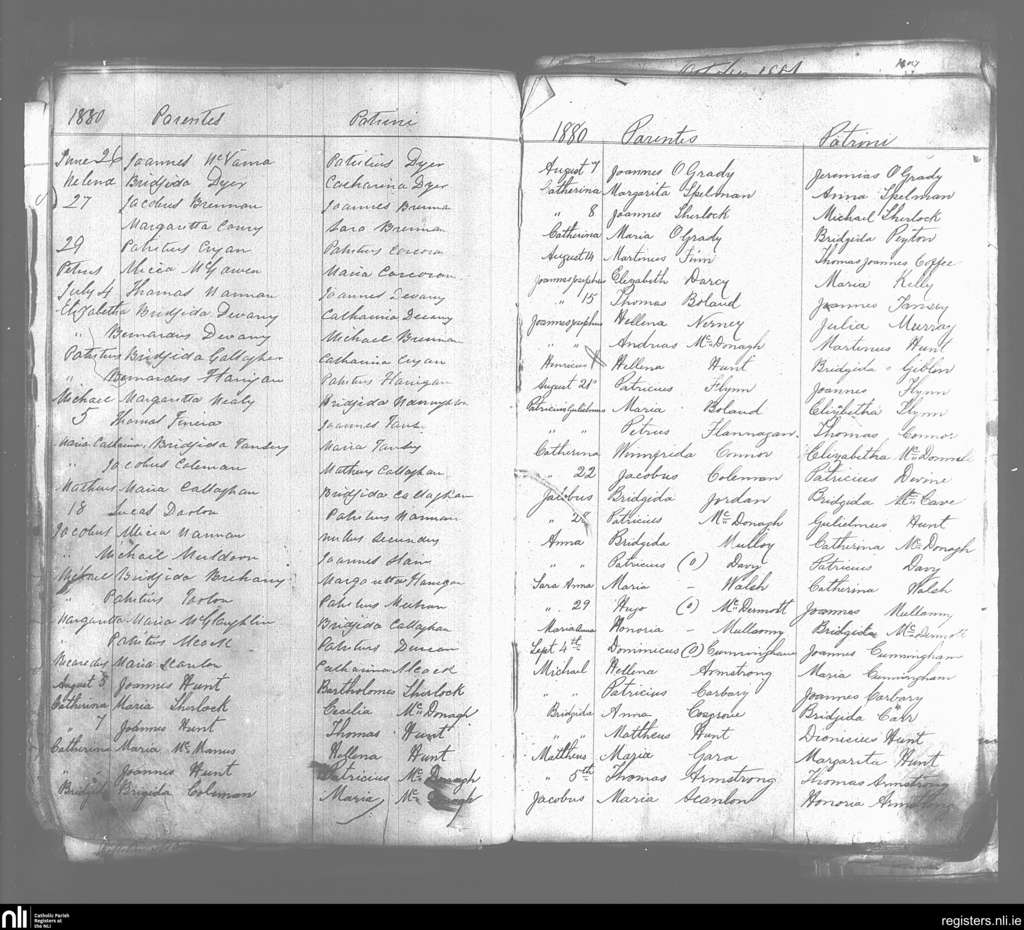 1880 Parentes Patrini
June 26 Joannes McNama Patritius Dyer
Helena Bridjida Dyer Catharina Dyer
27 Jacobus Brennan Joannes Brennan
Margaritta Conry Sara Brennan
29 Patritius Cryan Patritius Corcoran
Petrus Alicia McGawen Maria Corcoran
July 4 Thomas Hannan Joannes Devany
Elizabetha Bridjida Devany Catharina Devany
" Bernardus Devany Michael Brennan
Patritius Bridjida Gallagher Catharina Cryan
" Bernardus Flanigan Patritius Flanigan
Michael Margaritta Healy Bridjida
5 Thomas Joannes
Maria Catharina Bridjida Tansey Maria Tansey
" Jacobus Coleman Matheus Callaghan
Matheus Maria Callaghan Bridjida Callaghan
18 Lucas Patritius Hannan
Jacobus Alicia Hannan
" Michail Muldoon Joannes
Michael Bridjida Margaritta Flanigan
" Patritius Patritius
Margaritta Maria McGlaughlin Bridjida Callaghan
" Patritius Patritius Duncan
Maria Scanlon Catharina
August 3 Joannes Hunt Bartholomus Sherlock
Catherina Maria Sherlock Cecelia McDonagh
" 7 Joannes Hunt Thomas Hunt
Catherina Maria McManus Hellena Hunt
" " Joannes Hunt Patricius McDonagh
Bridjida Brigida Coleman Maria Mc
October 1881
1880 Parentes Patrini
August 7 Joannes O'Grady Jeremias O'Grady
Catherina Margarita Spelman Anna Spelman
" 8 Joannes Sherlock Michael Sherlock
Catherina Maria O'Grady Bridgida Peyton
August 14 Martinus Finn Thomas Joannes Coffee
Joannes Josephus Elizabeth Darcy Maria Kelly
" 15 Thomas Boland Joannes Tansey
Joannes Josephus Hellena Nerney Julia Murray
" " Andrias McDonagh Martinus Hunt
Henricus Hellena Hunt Bridgida Giblin
August 21st Patricius Flynn Joannes Flynn
Patricius Gulielmus Maria Boland Elizibetha Flynn
" " Petrus Flannagan Thomas Connor
Catherina Winnifrida Connor Elizabetha McDonnell
" 22 Jacobus Coleman Patricius Devine
Jacobus Bridgida Jordan Bridgida McCave
" 28 Patricius McDonagh Gulielmus Hunt
Anna Bridgida Mulloy Catherina McDonagh
" " Patricius (O) Davy Patricius Davy
Sara Anna Maria - Walsh Catherina Walsh
" 29 Hugo (O) McDermott Joannes Mullanny
Maria Anna Honoria - Mullanny Bridgida McDermott
Sept 4th Dominicus (O) Cunningham Joannes Cunningham
Michael Hellena Armstrong Maria Cunningham
" " Patricius Carbary Joannes Carbary
Bridgida Anna Cosgrove Bridgida Carr
" " Mattheus Hunt Dionicius Hunt
Mattheus Maria Gara Margarita Hunt
" 5th Thomas Armstrong Thomas Armstrong
Jacobus Maria Scanlon Honoria Armstrong
nli Catholic Parish Registers at the NLI
registers.nli.ie